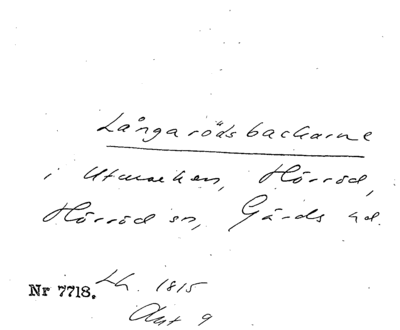 Långarödsbackarne
i Utmarken, Hörröd,
Hörröd sn, Gärds hd.
Nr 7718. Lh. 1815
Akt 9